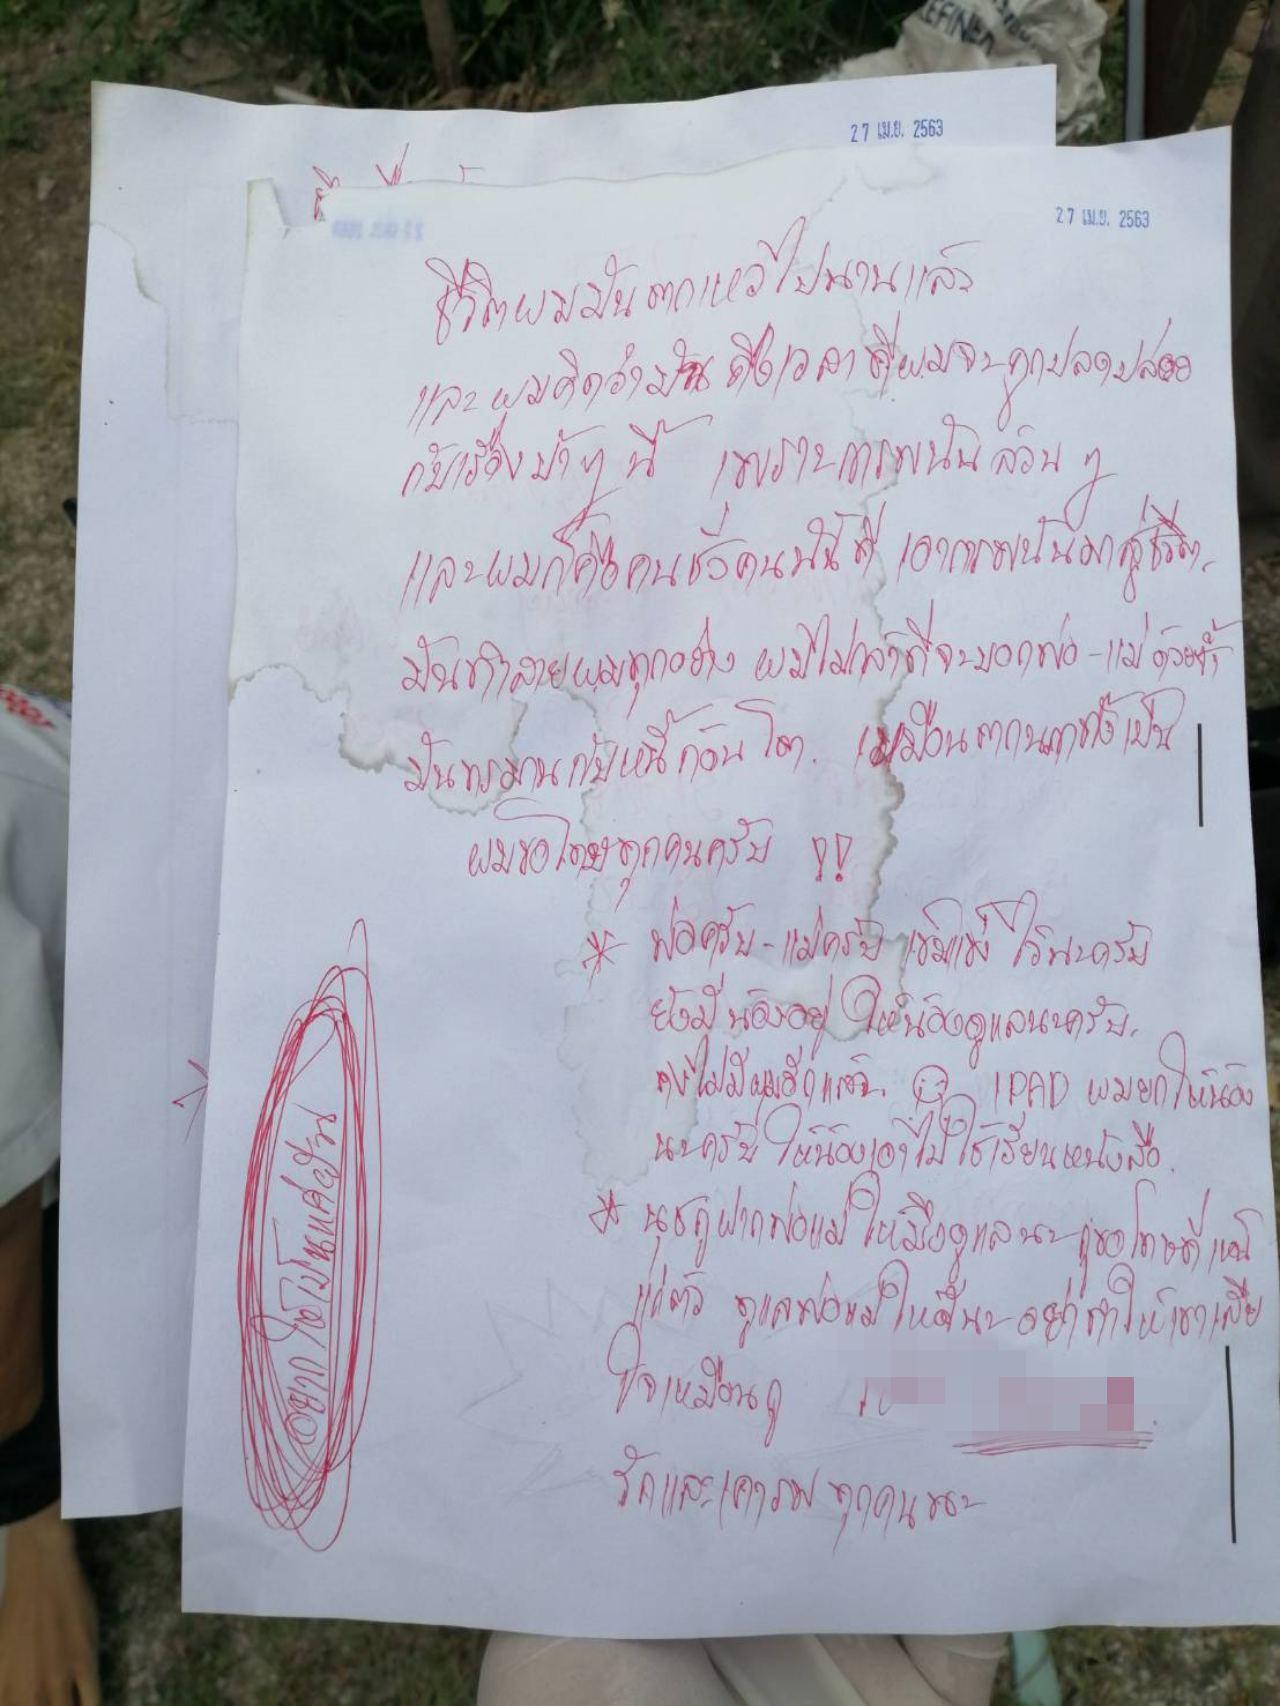 27 เม.ย. 2563
27 เม.ย. 2563
ชีวิตผมมันตกเหวไปนานแล้ว
และผมคิดว่ามันถึงเวลาที่ผมจะถูกปลดปล่อย
กับเรื่องบ้าๆนี้ เพราะการพนันล้วนๆ
และผมก็คือคนชั่วคนนึงที่เอาการพนันมาสู่ชีวิต.
มันทำลายผมทุกอย่าง ผมไม่กล้าที่จะบอกพ่อ-แม่ด้วยซ้ำ
มันทรมานกับหนี้ก้อนโต. เหมือนตกนรกทั้งเป็น
ผมขอโทษทุกคนครับ !!
* พ่อครับ-แม่ครับ เข้มแข็งไว้นะครับ
ยังมีน้องอยู่ ให้น้องดูแลนะครับ.
คงไม่มีผมอีกแล้ว. IPAD ผมยกให้น้อง
นะครับ ให้น้องเอาไปใช้เรียนหนังสือ.
* นุชกูฝากพ่อแม่ให้มึงดูแลนะ กูขอโทษที่เห็น
แก่ตัว ดูแลพ่อแม่ให้ดีนะ อย่าทำให้เขาเสีย
ใจเหมือนกู
รักและเคารพ ทุกคนนะ
อยากให้เป็นแค่ฝัน